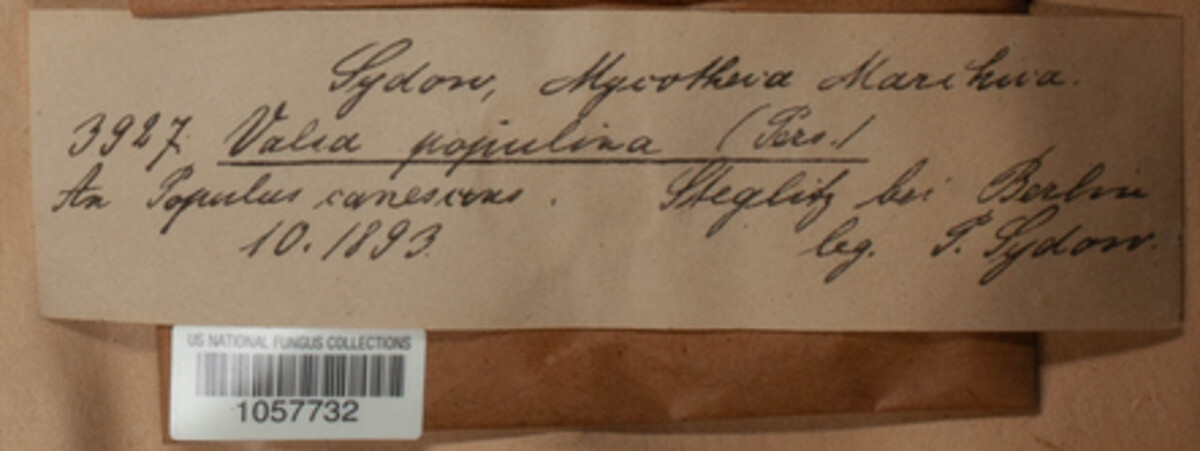 Sydow, Mycotheca Marchica.
3927. Valsa populina (Pers.)
An Populus canescens. Steglitz bei Berlin
10. 1893. leg. P. Sydow.
US NATIONAL FUNGUS COLLECTIONS
1057732